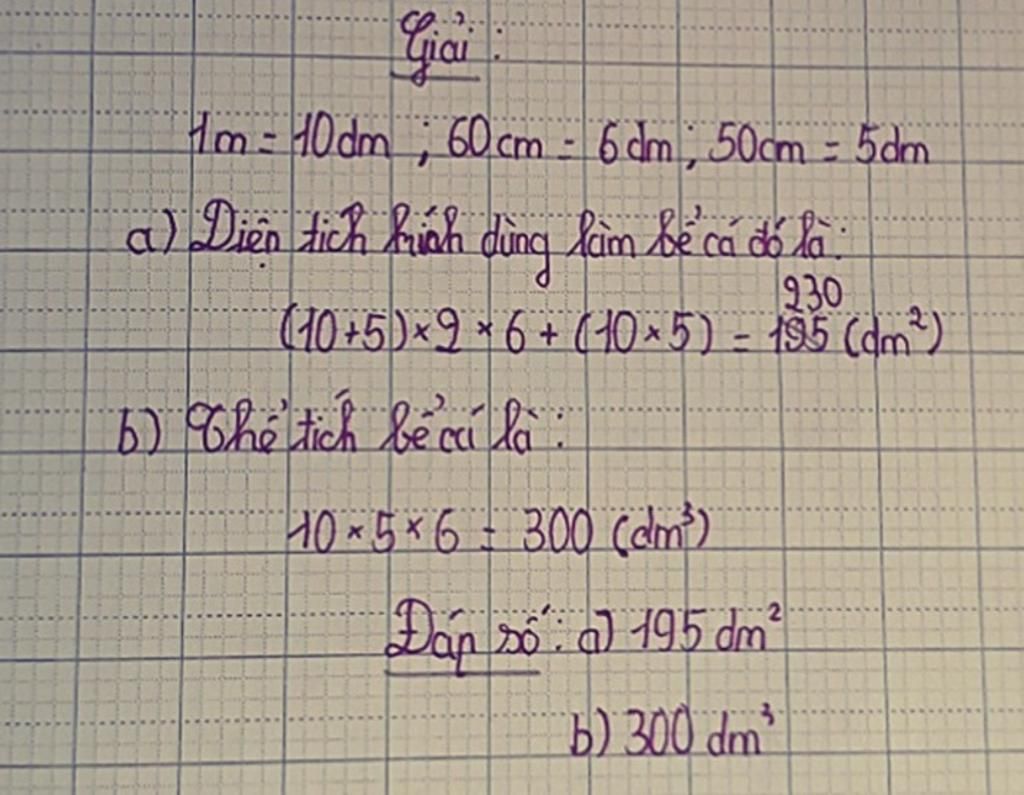 Giải :
1m = 10dm ; 60cm = 6dm ; 50cm = 5dm
a) Diện tích kính dùng làm bể cá đó là:
230
(10+5)×2 × 6 + (10×5) = 195 (dm²)
b) Thể tích bể cá là :
10 × 5 × 6 = 300 (dm³)
Đáp số : a) 195 dm²
b) 300 dm³